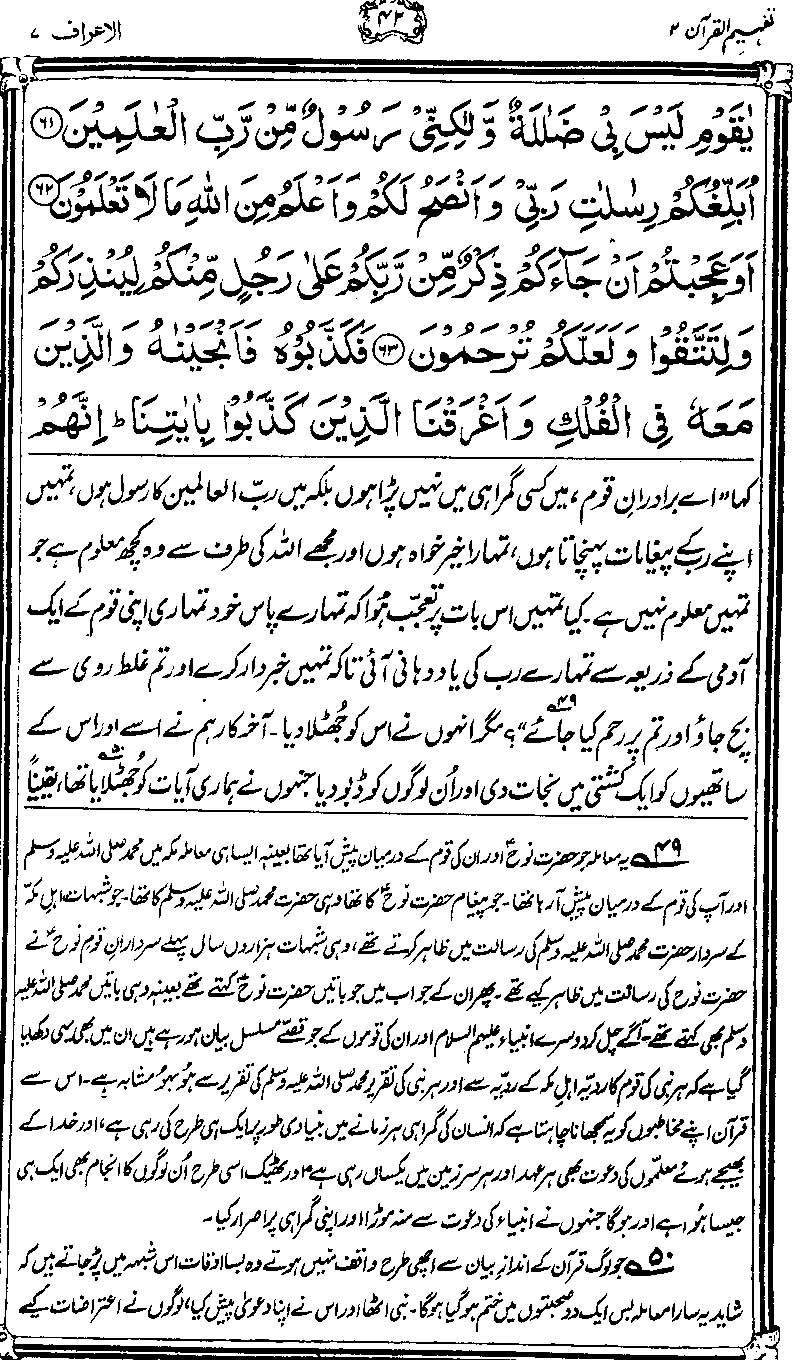 تفہیم القرآن ۲
۴۲
الاعراف ۷
يٰقَوْمِ لَيْسَ بِيْ ضَلٰلَةٌ وَّلٰكِنِّيْ رَسُوْلٌ مِّنْ رَّبِّ الْعٰلَمِيْنَ ﴿۶۱﴾
اُبَلِّغُكُمْ رِسٰلٰتِ رَبِّيْ وَاَنْصَحُ لَكُمْ وَاَعْلَمُ مِنَ اللّٰهِ مَا لَا تَعْلَمُوْنَ ﴿۶۲﴾
اَوَعَجِبْتُمْ اَنْ جَآءَكُمْ ذِكْرٌ مِّنْ رَّبِّكُمْ عَلٰى رَجُلٍ مِّنْكُمْ لِيُنْذِرَكُمْ
وَلِتَتَّقُوْا وَلَعَلَّكُمْ تُرْحَمُوْنَ ﴿۶۳﴾ فَكَذَّبُوْهُ فَاَنْجَيْنٰهُ وَالَّذِيْنَ
مَعَهٗ فِي الْفُلْكِ وَاَغْرَقْنَا الَّذِيْنَ كَذَّبُوْا بِاٰيٰتِنَا ؕ اِنَّهُمْ
کہا ”اے برادرانِ قوم، میں کسی گمراہی میں نہیں پڑا ہوں بلکہ میں ربّ العالمین کا رسول ہوں، تمہیں
اپنے رب کے پیغامات پہنچاتا ہوں، تمہارا خیر خواہ ہوں اور مجھے اللہ کی طرف سے وہ کچھ معلوم ہے جو
تمہیں معلوم نہیں ہے۔ کیا تمہیں اس بات پر تعجب ہُوا کہ تمہارے پاس خود تمہاری اپنی قوم کے ایک
آدمی کے ذریعہ سے تمہارے رب کی یاد دہانی آئی تاکہ تمہیں خبردار کرے اور تم غلط روی سے
بچ جاؤ اور تم پر رحم کیا جائے“؟ ۴۹ مگر انہوں نے اس کو جُھٹلا دیا۔ آخر کار ہم نے اسے اور اس کے
ساتھیوں کو ایک کشتی میں نجات دی اور اُن لوگوں کو ڈبو دیا جنہوں نے ہماری آیات کو جُھٹلایا تھا، ۵۰ یقیناً
۴۹ یہ معاملہ جو حضرت نوحؑ اور ان کی قوم کے درمیان پیش آیا تھا بعینہٖ ایسا ہی معاملہ مکہ میں محمد صلی اللہ علیہ وسلم
اور آپ کی قوم کے درمیان پیش آ رہا تھا۔ جو پیغام حضرت نوحؑ کا تھا وہی حضرت محمد صلی اللہ علیہ وسلم کا تھا۔ جو شبہات اہلِ مکّہ
کے سردار حضرت محمد صلی اللہ علیہ وسلم کی رسالت میں ظاہر کرتے تھے، وہی شبہات ہزاروں سال پہلے سردارانِ قومِ نوحؑ نے
حضرت نوح کی رسالت میں ظاہر کیے تھے۔ پھر ان کے جواب میں جو باتیں حضرت نوحؑ کہتے تھے بعینہٖ وہی باتیں محمد صلی اللہ علیہ
وسلم بھی کہتے تھے۔ آگے چل کر دوسرے انبیاء علیہم السلام اور ان کی قوموں کے جو قصّے مسلسل بیان ہو رہے ہیں ان میں بھی یہی دکھایا
گیا ہے کہ ہر نبی کی قوم کا رویّہ اہلِ مکہ کے رویّہ سے اور ہر نبی کی تقریر محمد صلی اللہ علیہ وسلم کی تقریر سے ہُو بہُو مشابہ ہے۔ اس سے
قرآن اپنے مخاطبوں کو یہ سمجھانا چاہتا ہے کہ انسان کی گمراہی ہر زمانے میں بنیادی طور پر ایک ہی طرح کی رہی ہے، اور خدا کے
بھیجے ہوئے معلّموں کی دعوت بھی ہر عہد اور ہر سرزمین میں یکساں رہی ہے، اور ٹھیک اسی طرح اُن لوگوں کا انجام بھی ایک ہی
جیسا ہُوا ہے اور ہوگا جنہوں نے انبیاء کی دعوت سے منہ موڑا اور اپنی گمراہی پر اصرار کیا۔
۵۰ جو لوگ قرآن کے اندازِ بیان سے اچھی طرح واقف نہیں ہوتے وہ بسا اوقات اس شبہہ میں پڑ جاتے ہیں کہ
شاید یہ سارا معاملہ بس ایک دو صحبتوں میں ختم ہو گیا ہوگا۔ نبی اٹھا اور اس نے اپنا دعویٰ پیش کیا، لوگوں نے اعتراضات کیے